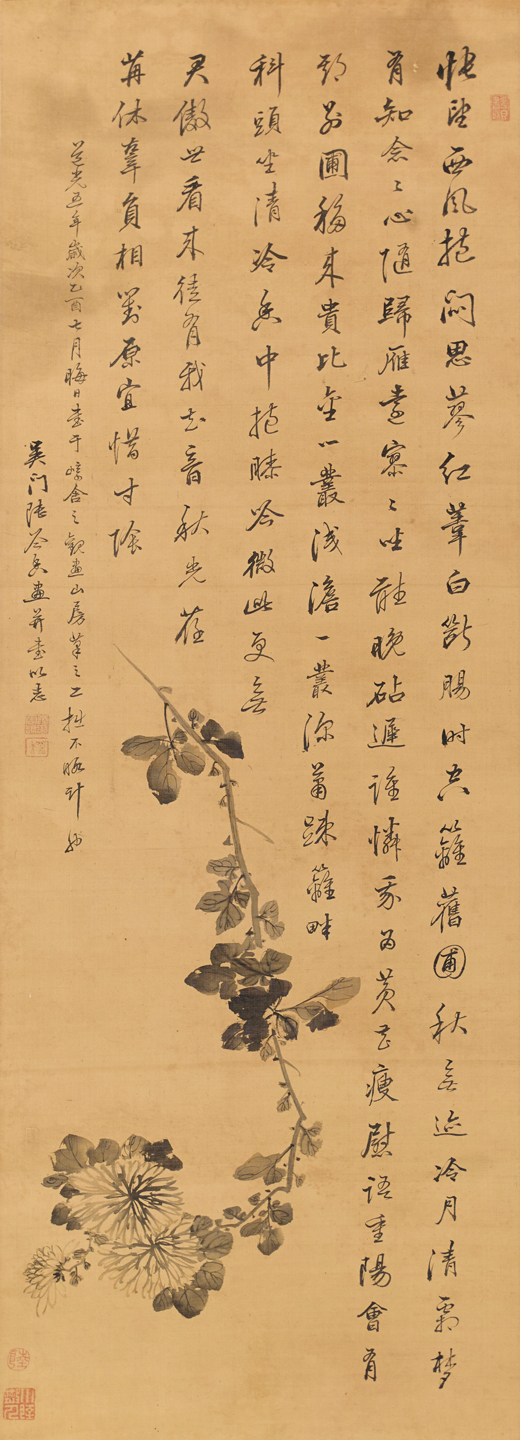 悵望西風抱悶思蓼紅葦白斷腸時空籬舊圃秋無迹冷月清霜夢
有知念〻心隨歸雁遠寥〻坐聽晚砧遲誰憐我為黃花瘦慰語重陽會有
期別圃移來貴比金一叢淺澹一叢深蕭疎籬畔
科頭坐清冷香中抱膝吟微此更無
君傲世看來徒有我知音秋光荏
苒休辜負相對原宜惜寸陰
道光五年歲次乙酉七月晦日書于舍之觀畫山房草之工拙不暇計
吳門陸吟香畫并書以志